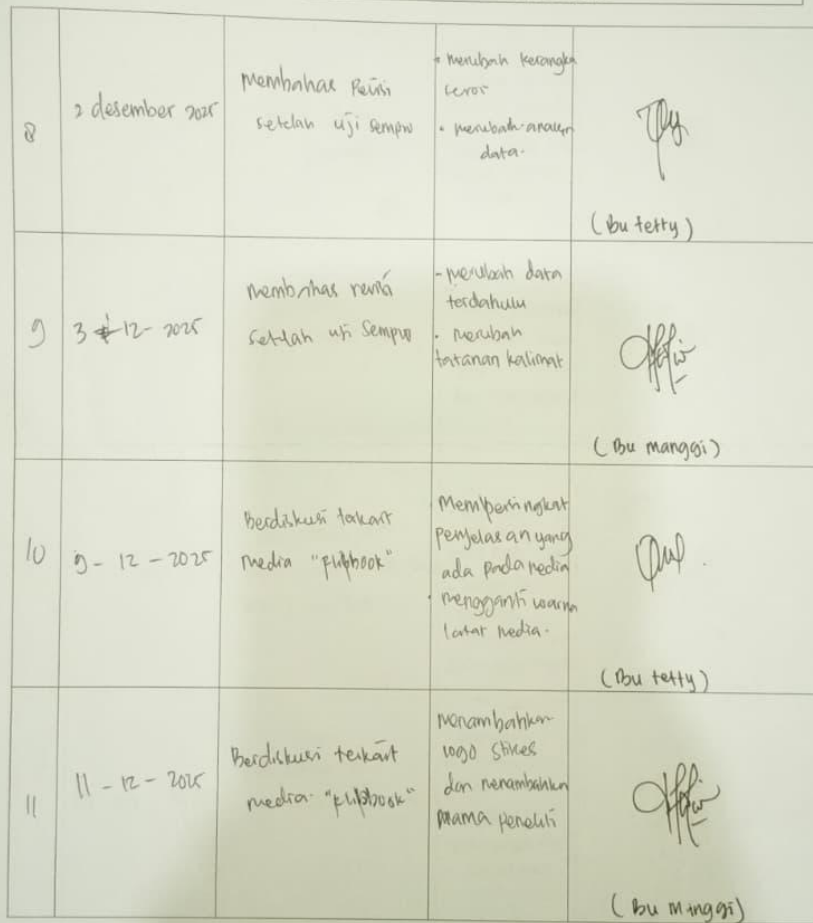 8
2 desember 2025
Membahas Revisi
setelah uji sempro
• merubah kerangka
teros
• merubah analisis
data.
(Bu tetty)
9
3 - 12 - 2025
membahas revisi
setelah uji Sempro
- merubah data
terdahulu
• merubah
tatanan kalimat
(Bu manggi)
10
9 - 12 - 2025
Berdiskusi terkait
media "flipbook"
Mempersingkat
penjelasan yang
ada pada media
• mengganti warna
latar media.
(Bu tetty)
11
11 - 12 - 2025
Berdiskusi terkait
media "flipbook"
Menambahkan
logo stikes
dan menambahkan
nama peneliti
(Bu manggi)